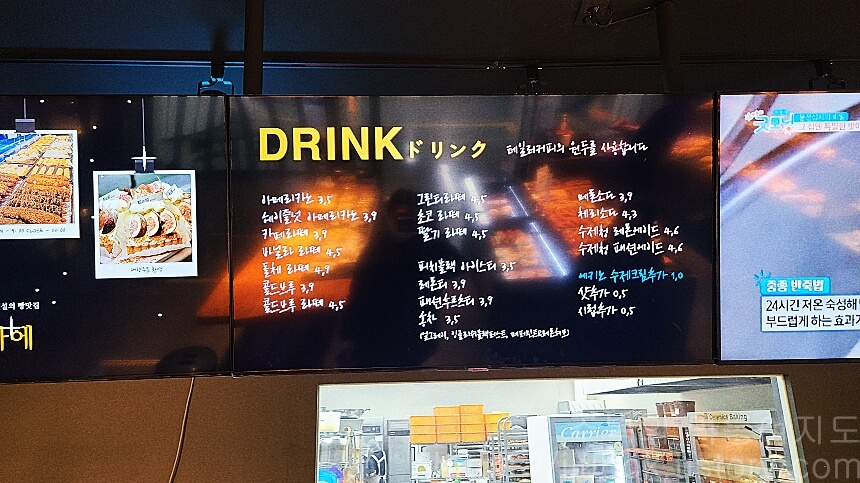 DRINK ドリンク 테일러커피의 원두를 사용합니다
아메리카노 3,5
헤이즐넛 아메리카노 3,9
카페라떼 3,9
바닐라 라떼 4,5
돌체 라떼 4,9
콜드브루 3,9
콜드브루 라떼 4,5
그린티라떼 4,5
초코 라떼 4,5
딸기 라떼 4,5
피치블랙 아이스티 3,5
레몬티 3,9
패션후르츠티 3,9
홍차 3,5
(얼그레이, 잉글리쉬블랙퍼스트, 페퍼민트&레몬허브)
메론소다 3,9
체리소다 4,3
수제청 레몬에이드 4,6
수제청 패션에이드 4,6
에키노 수제크림추가 1,0
샷추가 0,5
시럽추가 0,5
설의 빵맛집
굿모닝
그 집만 특별한 맛이
중종 반죽법
24시간 저온 숙성해
부드럽게 하는 효과가
Carrier
Baking
지도
.com